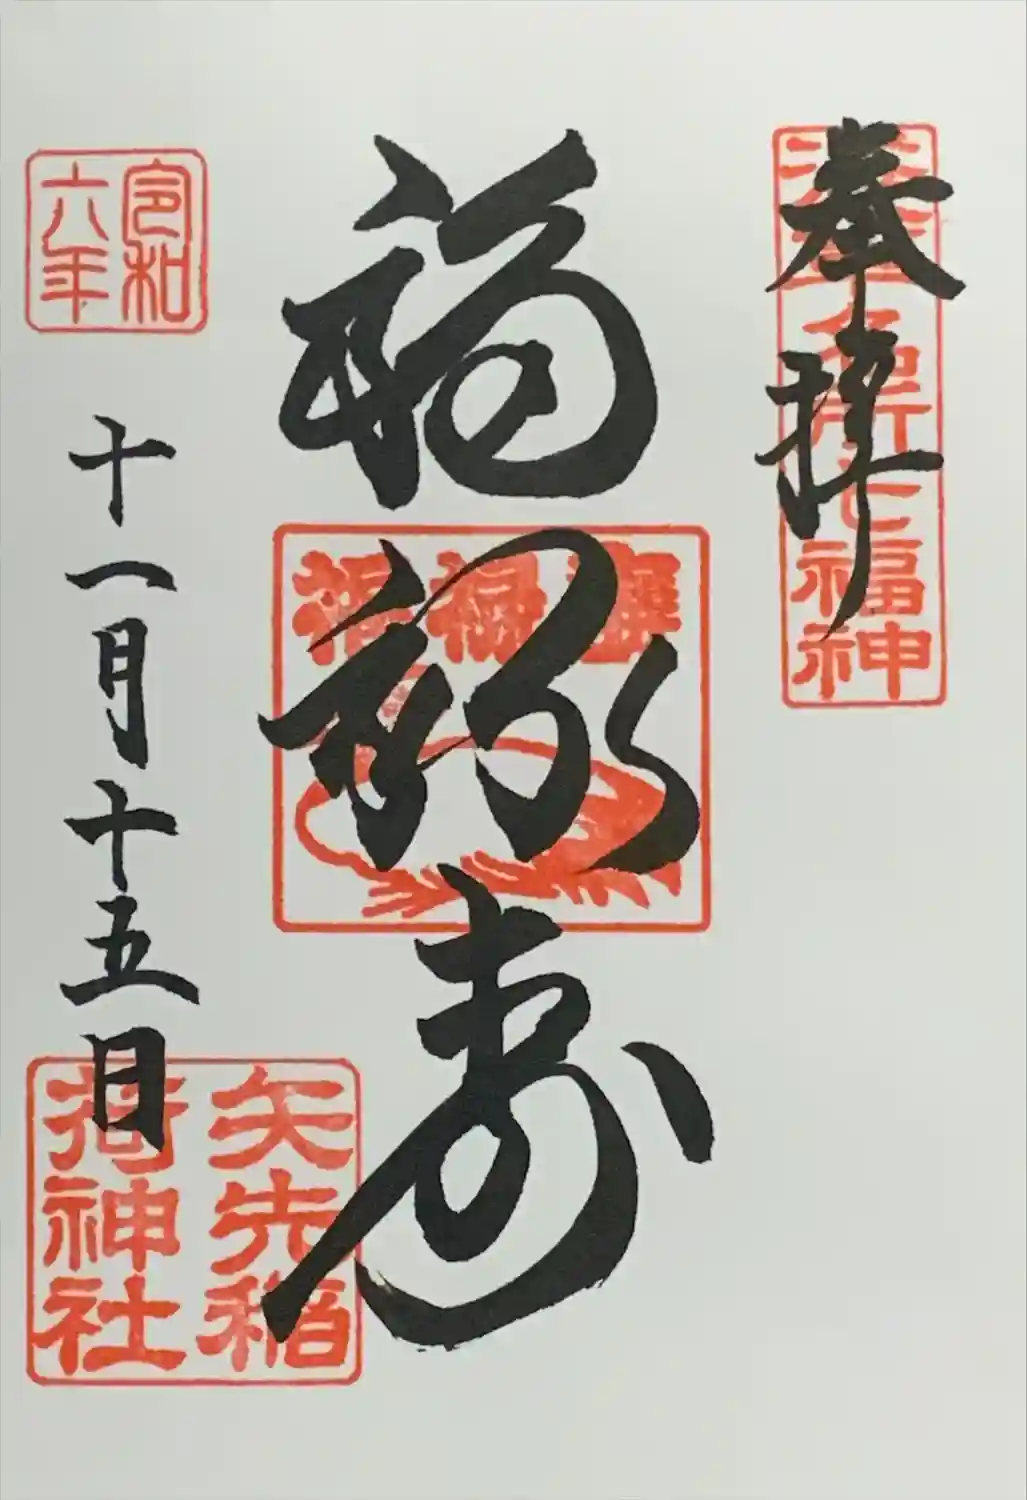 奉拝
浅草名所七福神
福禄寿
福禄寿
令和六年
十一月十五日
矢先稲荷神社